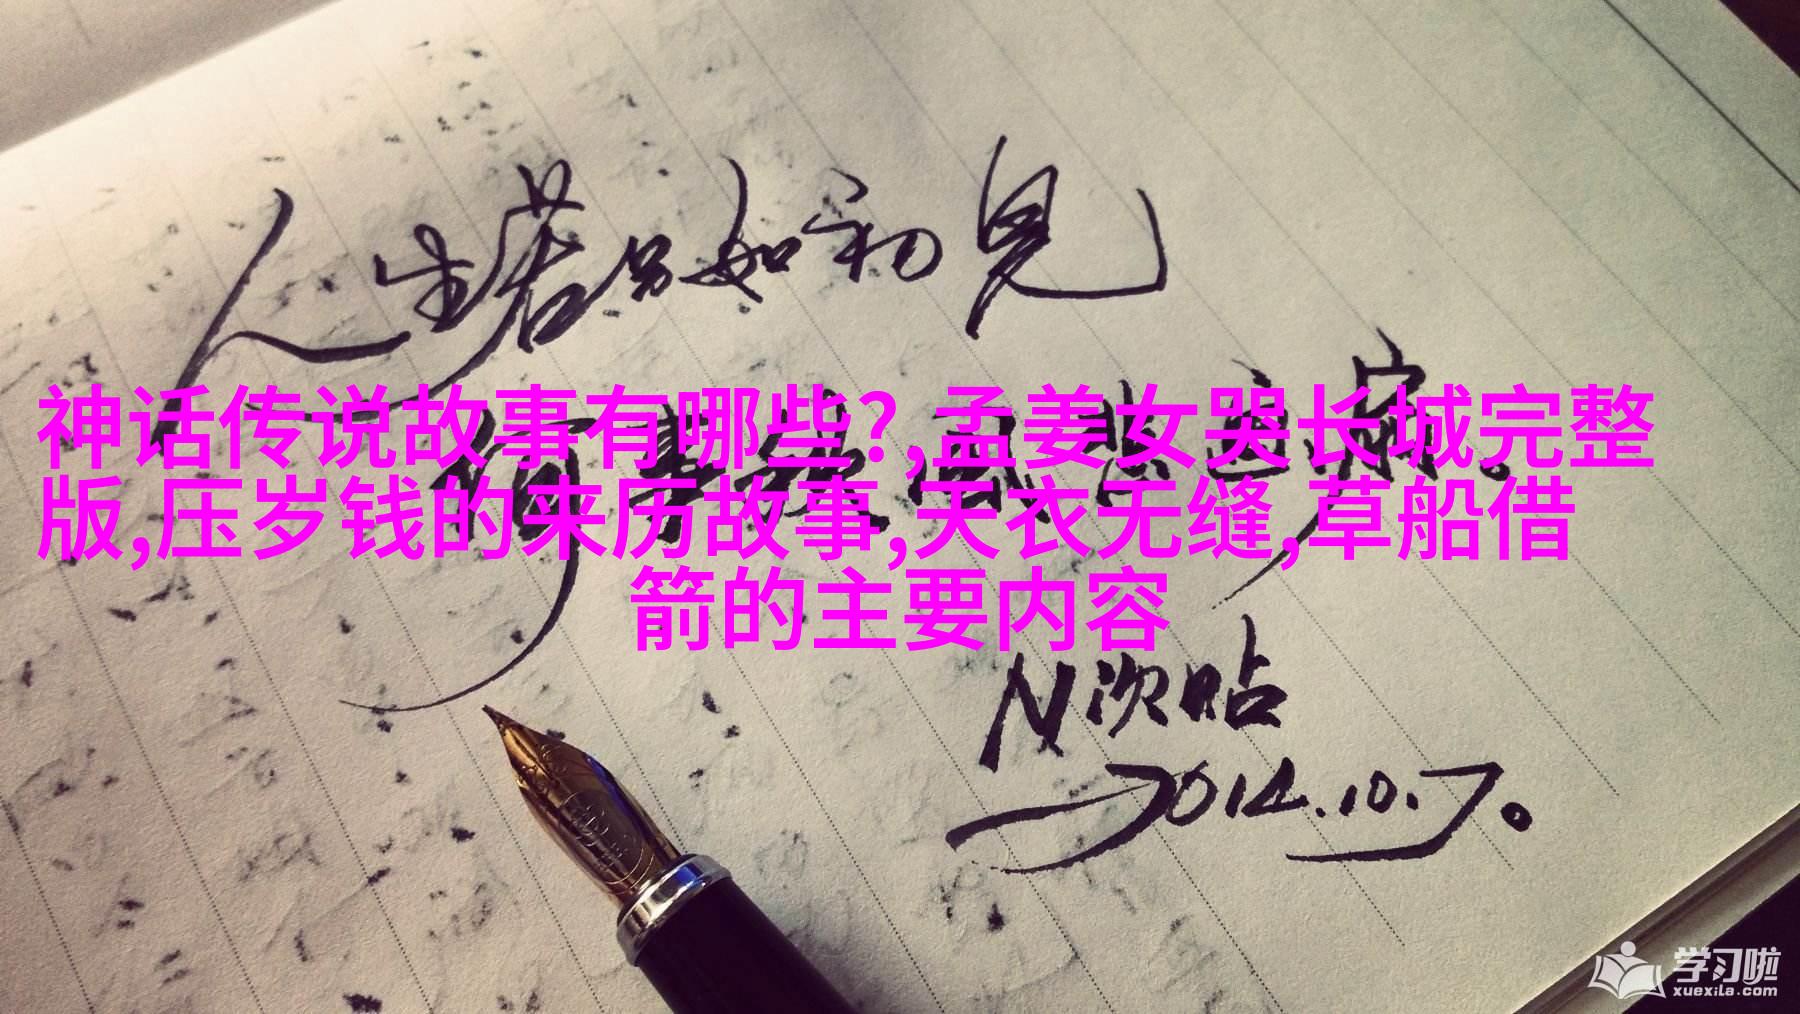 人生若只如初见
何事秋风悲画扇。
神话传说故事有哪些?,孟姜女哭长城完整
版,压岁钱的来历故事,天衣无缝,草船借
箭的主要内容
N次贴
2014.10.7。
学习啦
xuexila.com